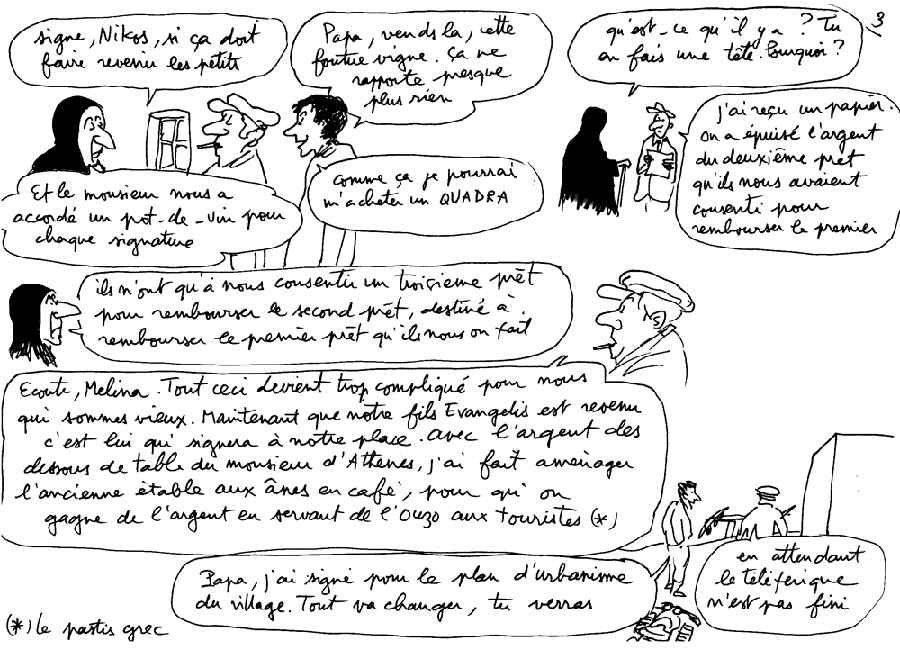 3
signe, Nikos, si ça doit
faire revenir les petits
Papa, vends la, cette
foutue vigne. ça ne
rapporte presque
plus rien
Et le monsieur nous a
accordé un pot-de-vin pour
chaque signature
comme ça je pourrai
m'acheter un QUADRA
qu'est-ce qu'il y a ? Tu
en fais une tête. Pourquoi ?
j'ai reçu un papier.
on a épuisé l'argent
du deuxième prêt
qu'ils nous avaient
consenti pour
rembourser le premier
ils n'ont qu'à nous consentir un troisième prêt
pour rembourser le second prêt, destiné à
rembourser le premier prêt qu'ils nous on fait
Ecoute, Melina. Tout ceci devient trop compliqué pour nous
qui sommes vieux. Maintenant que notre fils Evangelis est revenu
c'est lui qui signera à notre place. avec l'argent des
dessous de table du monsieur d'Athènes, j'ai fait aménager
l'ancienne étable aux ânes en café, pour qu'on
gagne de l'argent en servant de l'Ouzo aux touristes (*)
Papa, j'ai signé pour le plan d'urbanisme
du village. Tout va changer, tu verras
en attendant
le téléférique
n'est pas fini
(*) le pastis grec